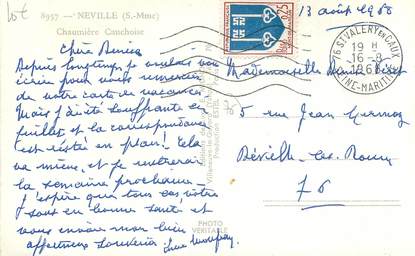 lot
8957 - NEVILLE (S.-Mme)
Chaumière Cauchoise
13 août 1968
76 St VALERY EN CAUX
19 H
16 - 8
196
SEINE-MARITIME
0,25
Chère Denise
Depuis longtemps je voulais vous
écrire pour vous remercier
de votre carte de vacances
Mais j'ai été souffrante en
juillet et la correspondance
est restée en plan ! Cela
va mieux, et je rentrerai
la semaine prochaine
J'espère que tous, chez vous
sont en bonne santé et
vous envoie mon bien
affectueux souvenir.
Mademoiselle Denise
5 rue Jean Mermoz
Déville-les-Rouen
76
PHOTO
VERITABLE